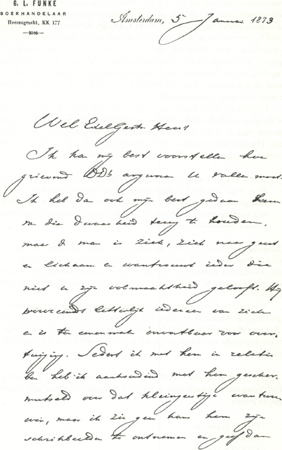 G. L. FUNKE
BOEKHANDELAAR
Heerengracht, KK 177
Amsterdam, 5 Januari 1873
Wel Edelgeb. Heer
Ik kan mij best voorstellen hoe
grievend DD's argwaan U vallen moet.
Ik heb dan ook mijn best gedaan hem
van die dwaasheid terug te houden,
maar de man is ziek, ziek naar geest
en lichaam en wantrouwt ieder die
niet in zijn volmaaktheid gelooft. Hij
letterlijk iedereen van zich
en is ten eenenmale onvatbaar voor over-
tuiging. Sedert ik met hem in relatie
ben heb ik aanhoudend met hem gescher-
mutseld over dat kleingeestige wantrou-
wen, maar ik zie geen kans hem zijn
schrikbeelden te ontnemen en geef dan